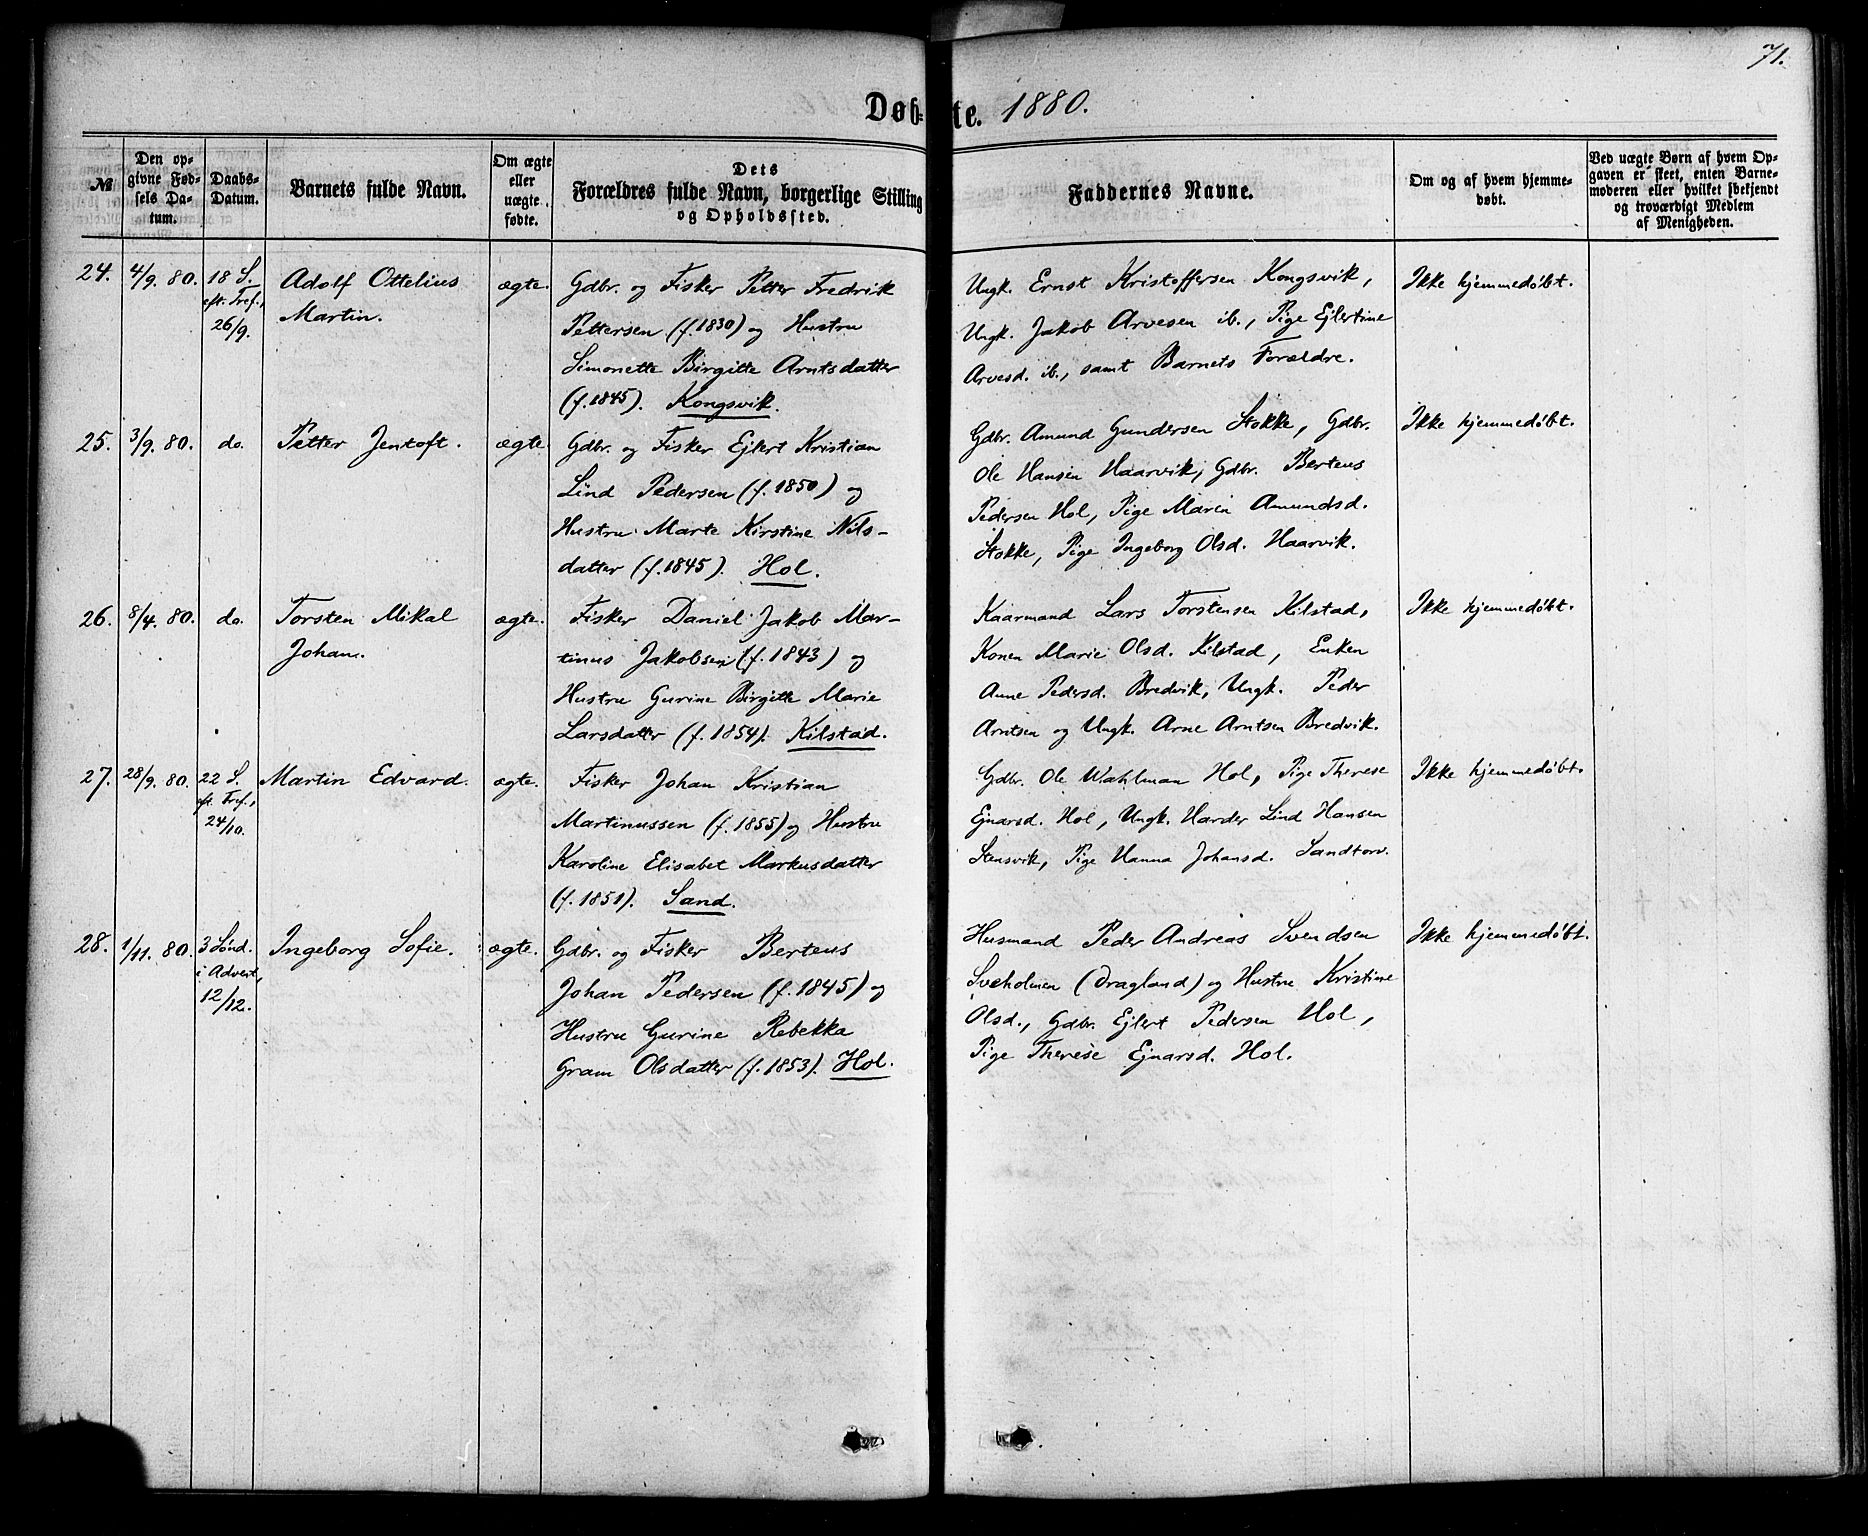 71.
Døbte. 1880.
№
Den opgivne Fødsels Datum.
Daabs-Datum.
Barnets fulde Navn.
Om ægte eller uægte fødte.
Dets Forældres fulde Navn, borgerlige Stilling og Opholdssted.
Faddernes Navne.
Om og af hvem hjemmedøbt.
Ved uægte Børn af hvem Opgaven er skeet, enten Barnemoderen eller hvilket sbekjendt og troværdigt Medlem af Menigheden.
24. 4/9. 80. 18 S. eft. Tref., 26/9.
Adolf Ottelius
Martin.
ægte.
Gdbr. og Fisker Petter Fredrik
Pettersen (f. 1830) og Hustru
Simonette Birgitte Arntsdatter
(f. 1845). Kongsvik.
Ungk. Ernst Kristoffersen Kongsvik,
Ungk. Jakob Arvesen ib., Pige Ejlertine
Arvesd. ib., samt Barnets Forældre.
Ikke hjemmedøbt.
25. 3/9. 80. do.
Petter Jentoft.
ægte.
Gdbr. og Fisker Ejlert Kristian
Lind Pedersen (f. 1850) og
Hustru Marte Kirstine Nils-
datter (f. 1845). Hol.
Gdbr. Amund Gundersen Stokke, Gdbr.
Ole Hansen Haarvik, Gdbr. Berteus
Pedersen Hol, Pige Maren Amundsd.
Stokke, Pige Ingeborg Olsd. Haarvik.
Ikke hjemmedøbt.
26. 8/4. 80. do.
Torsten Mikal
Johan.
ægte.
Fisker Daniel Jakob Mar-
tinus Jakobsen (f. 1843) og
Hustru Gurine Birgitte Marie
Larsdatter (f. 1854). Kilstad.
Kaarmand Lars Torstensen Kilstad,
Konen Marie Olsd. Kilstad, Enken
Anne Pedersd. Bredvik, Ungk. Peder
Arntsen og Ungk. Arne Arntsen Bredvik.
Ikke hjemmedøbt.
27. 28/9. 80. 22 S. eft. Tref., 24/10.
Martin Edvard.
ægte.
Fisker Johan Kristian
Martinussen (f. 1855) og Hustru
Karoline Elisabet Markusdatter
(f. 1851). Sand.
Gdbr. Ole Wahlman Hol, Pige Therese
Ejnarsd. Hol, Ungk. Harder Lind Hansen
Stensvik, Pige Hanna Johansd. Sandtorv.
Ikke hjemmedøbt.
28. 1/11. 80. 3 Sønd. i Advent, 12/12.
Ingeborg Sofie.
ægte.
Gdbr. og Fisker Berteus
Johan Pedersen (f. 1845) og
Hustru Gurine Rebekka
Gram Olsdatter (f. 1853). Hol.
Husmand Peder Andreas Svendsen
Sveholmen (Dragland) og Hustru Kristine
Olsd., Gdbr. Ejlert Pedersen Hol,
Pige Therese Ejnarsd. Hol.
Ikke hjemmedøbt.